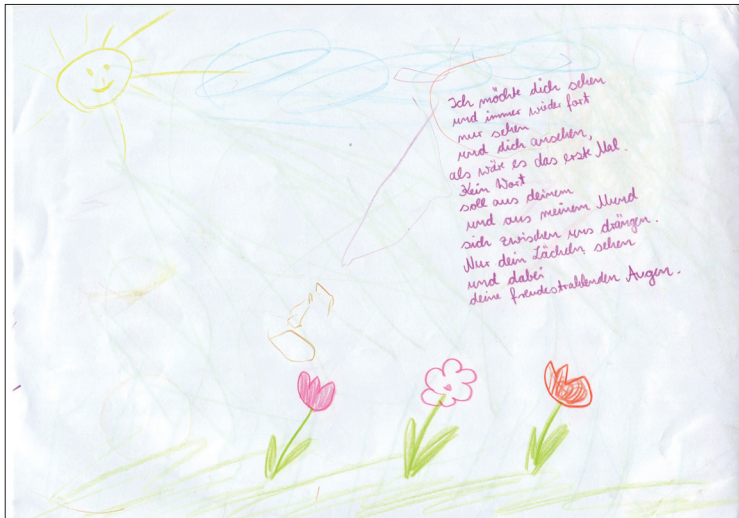 Ich möchte dich sehen
und immer wieder fort
nur sehen
und dich ansehen,
als wäre es das erste Mal.
Kein Wort
soll aus deinem
und aus meinem Mund
sich zwischen uns drängen.
Nur dein Lächeln sehen
und dabei
deine freudestrahlenden Augen.